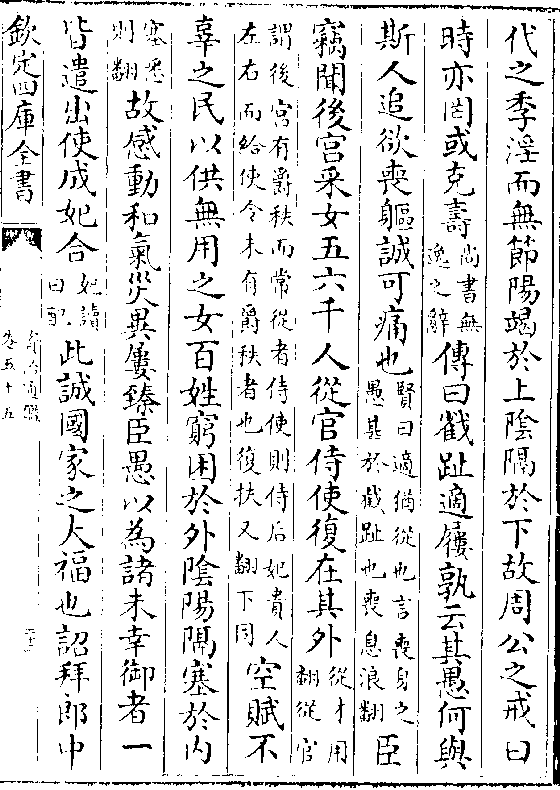 代之季淫而無節陽竭於上陰隔於下故周公之戒曰
時亦罔或克壽尚書無逸之辭傳曰截趾適屨孰云其愚何與
斯人追欲喪軀誠可痛也賢曰適猶從也言喪身之愚甚於截趾也喪息浪翻臣
竊聞後宮采女五六千人從官侍使復在其外從才用翻從官
謂後宮有爵秩而常從者侍使則侍后妃貴人左右而給使令未有爵秩者也復扶又翻下同空賦不
辜之民以供無用之女百姓窮困於外陰陽隔塞於内
塞悉則翻故感動和氣災異屢臻臣愚以為諸未幸御者一
皆遣出使成妃合妃讀曰配此誠國家之大福也詔拜郎中
欽定四庫全書
資治通鑑
卷五十五